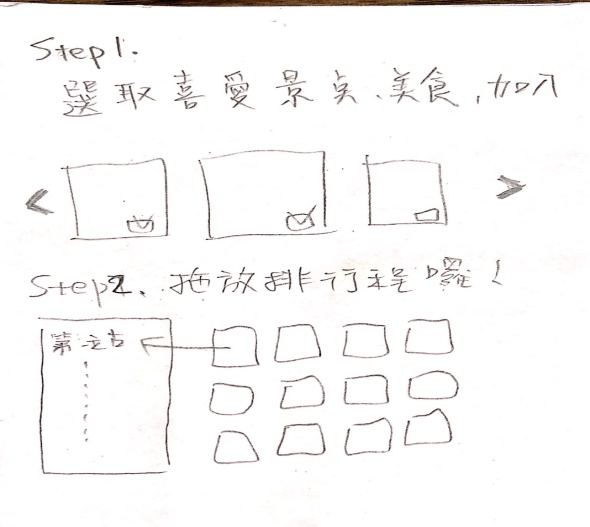 Step1.
選取喜愛景点、美食,加入
<
>
Step2. 拖放排行程囉!
第一站